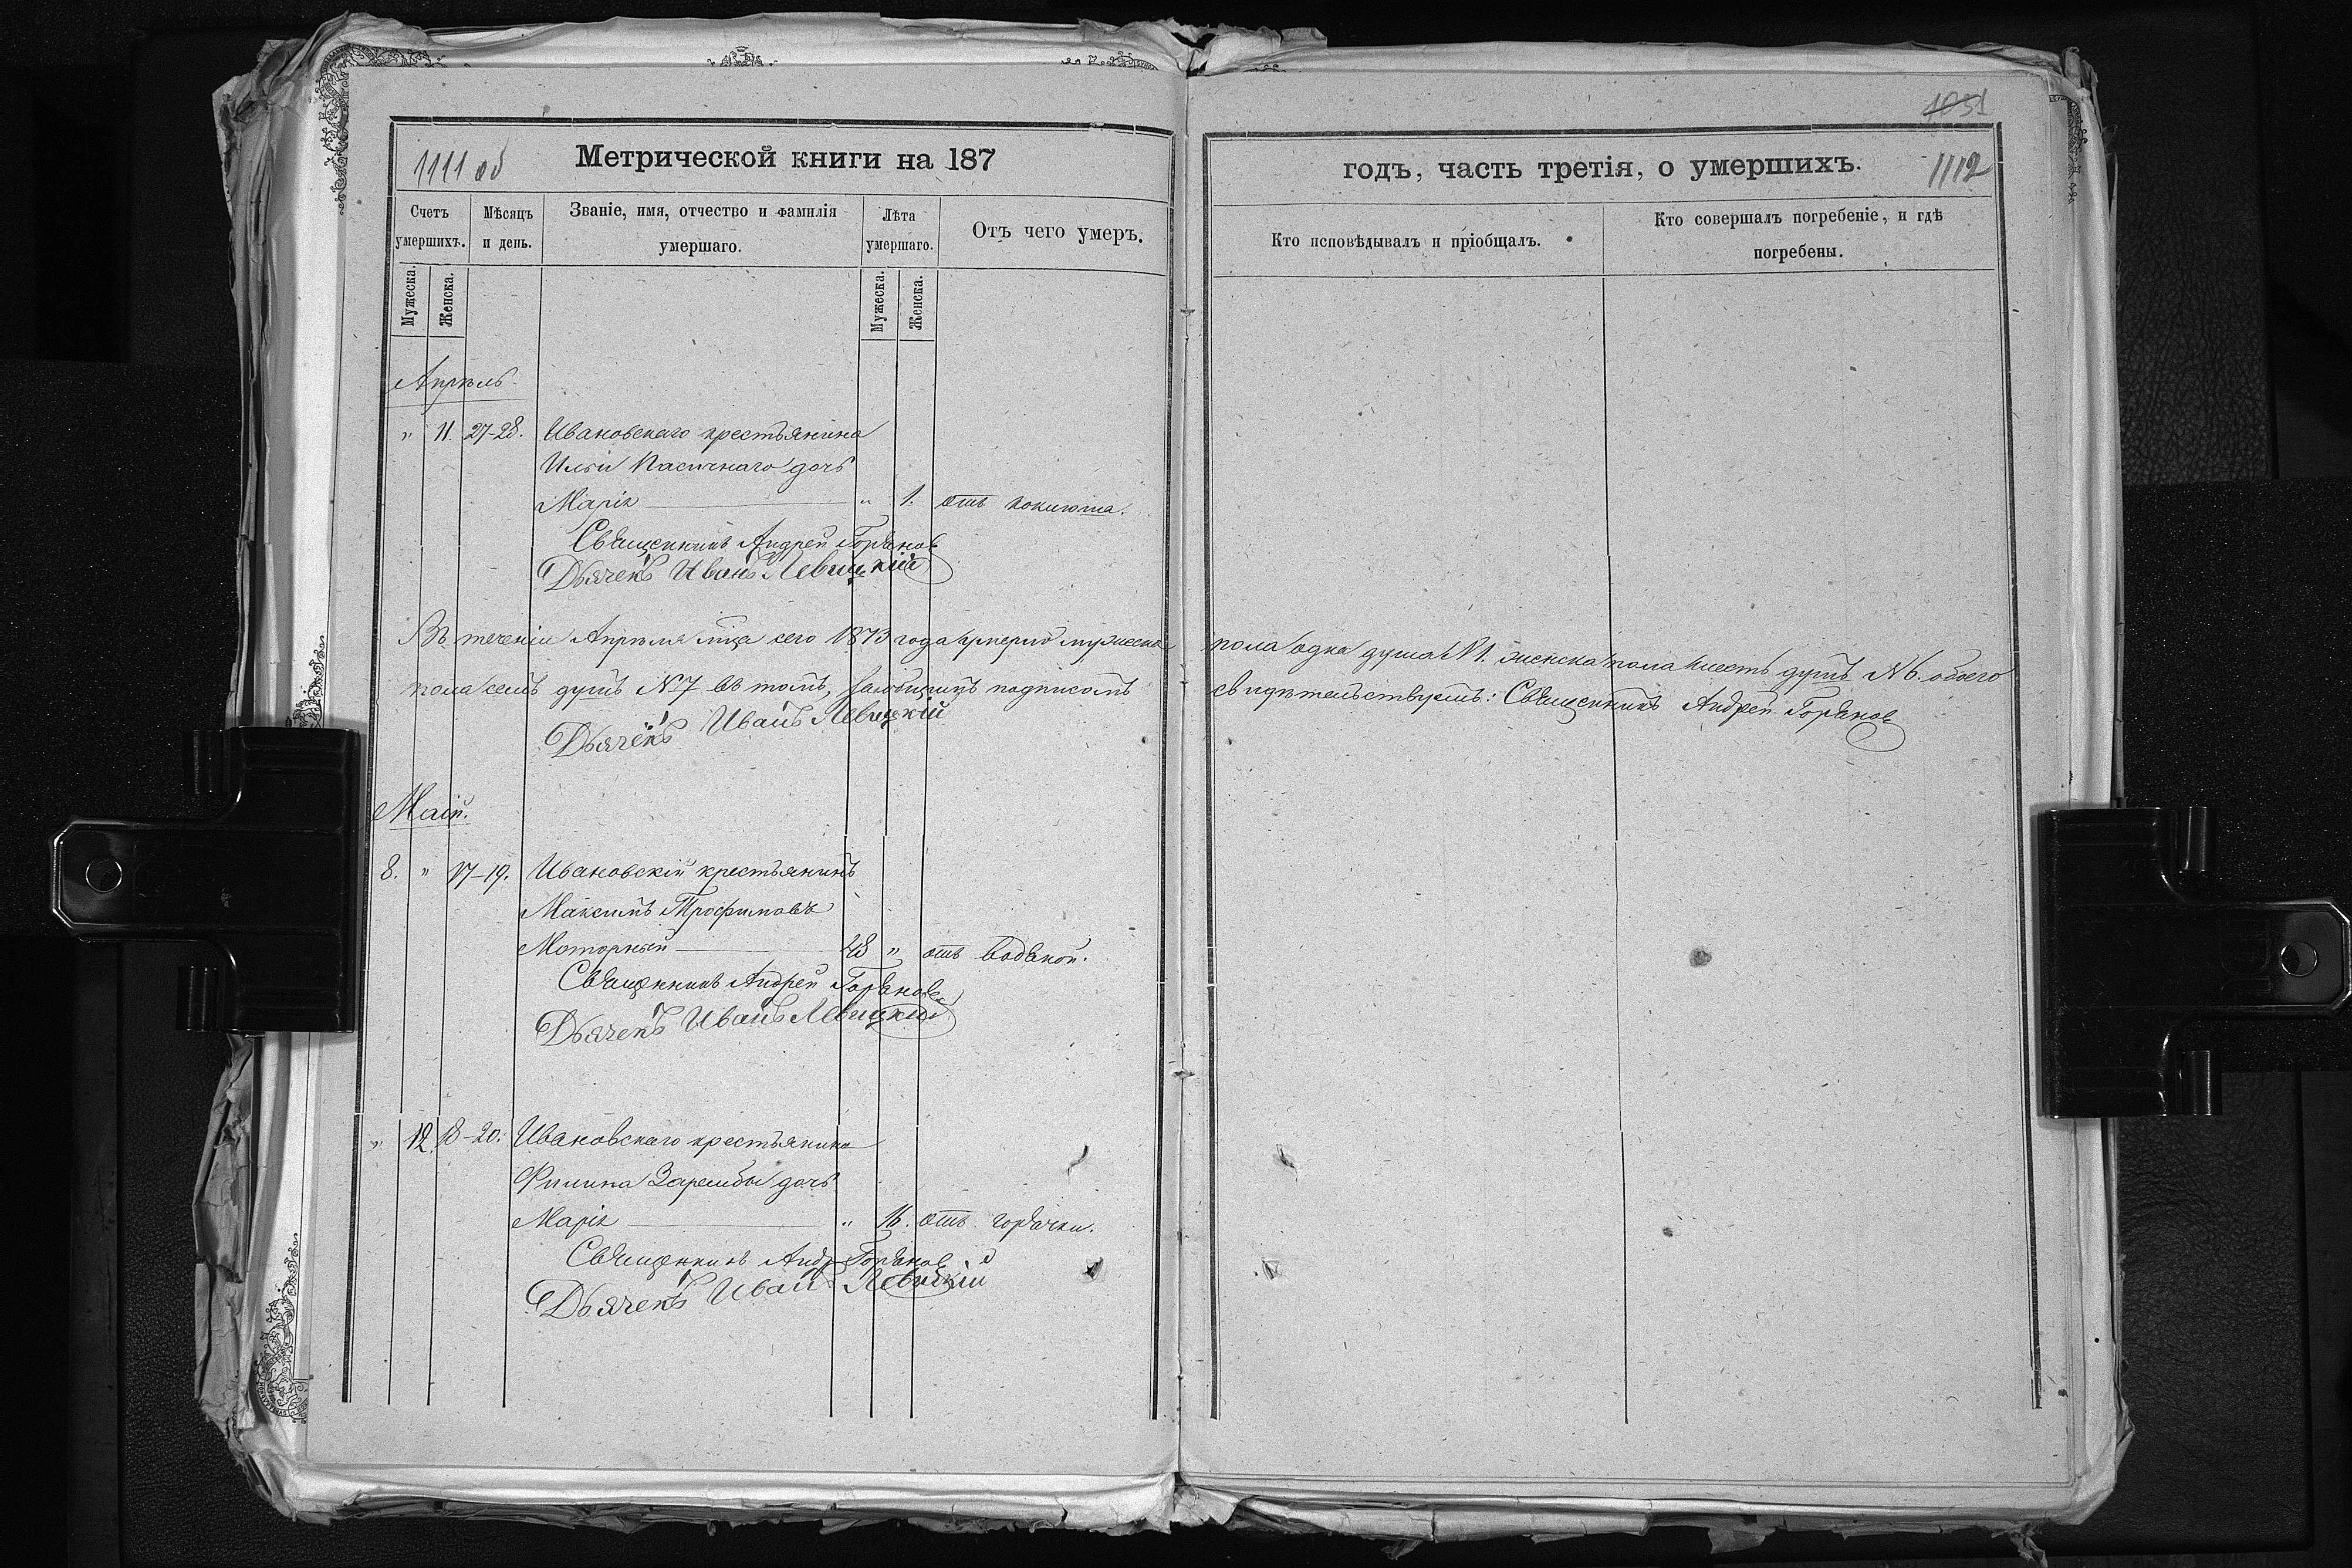 1111 об
Метрической книги на 187
Счетъ умершихъ.
Мѣсяцъ и день.
Званіе, имя, отчество и фамилія умершаго.
Лѣта умершаго.
Отъ чего умеръ.
Мужеска.
Женска.
Мужеска.
Женска.
Апрѣль
" 11. 27-28. Ивановскаго крестьянина
Ильи Пасичнаго дочь
Марія " 1. отъ коклюша.
Священникъ Андрей Горяновъ
Дьячекъ Иванъ Левицкій
Въ теченіи Апрѣля мца сего 1873 года умерло мужеска
пола семъ душъ №7 въ томъ, подписомъ
Дьячекъ Иванъ Левицкій
Маій.
8. " 17-19. Ивановскій крестьянинъ
Максимъ Трофимовъ
Моторный 48 " отъ водяной.
Священникъ Андрей Горяновъ
Дьячекъ Иванъ Левицкій
" 12. 18-20. Ивановскаго крестьянина
Филипа Зарембы дочь
Марія " 16. отъ горячки.
Священникъ Андр Горяновъ
Дьячекъ Иван Левицкій
1031
годъ, часть третія, о умершихъ.
1112
Кто исповѣдывалъ и пріобщалъ.
Кто совершалъ погребеніе, и гдѣ
погребены.
пола одна душа №1. женска пола шесть душъ №6. обоего
свидѣтельствуемъ: Священникъ Андрей Горяновъ